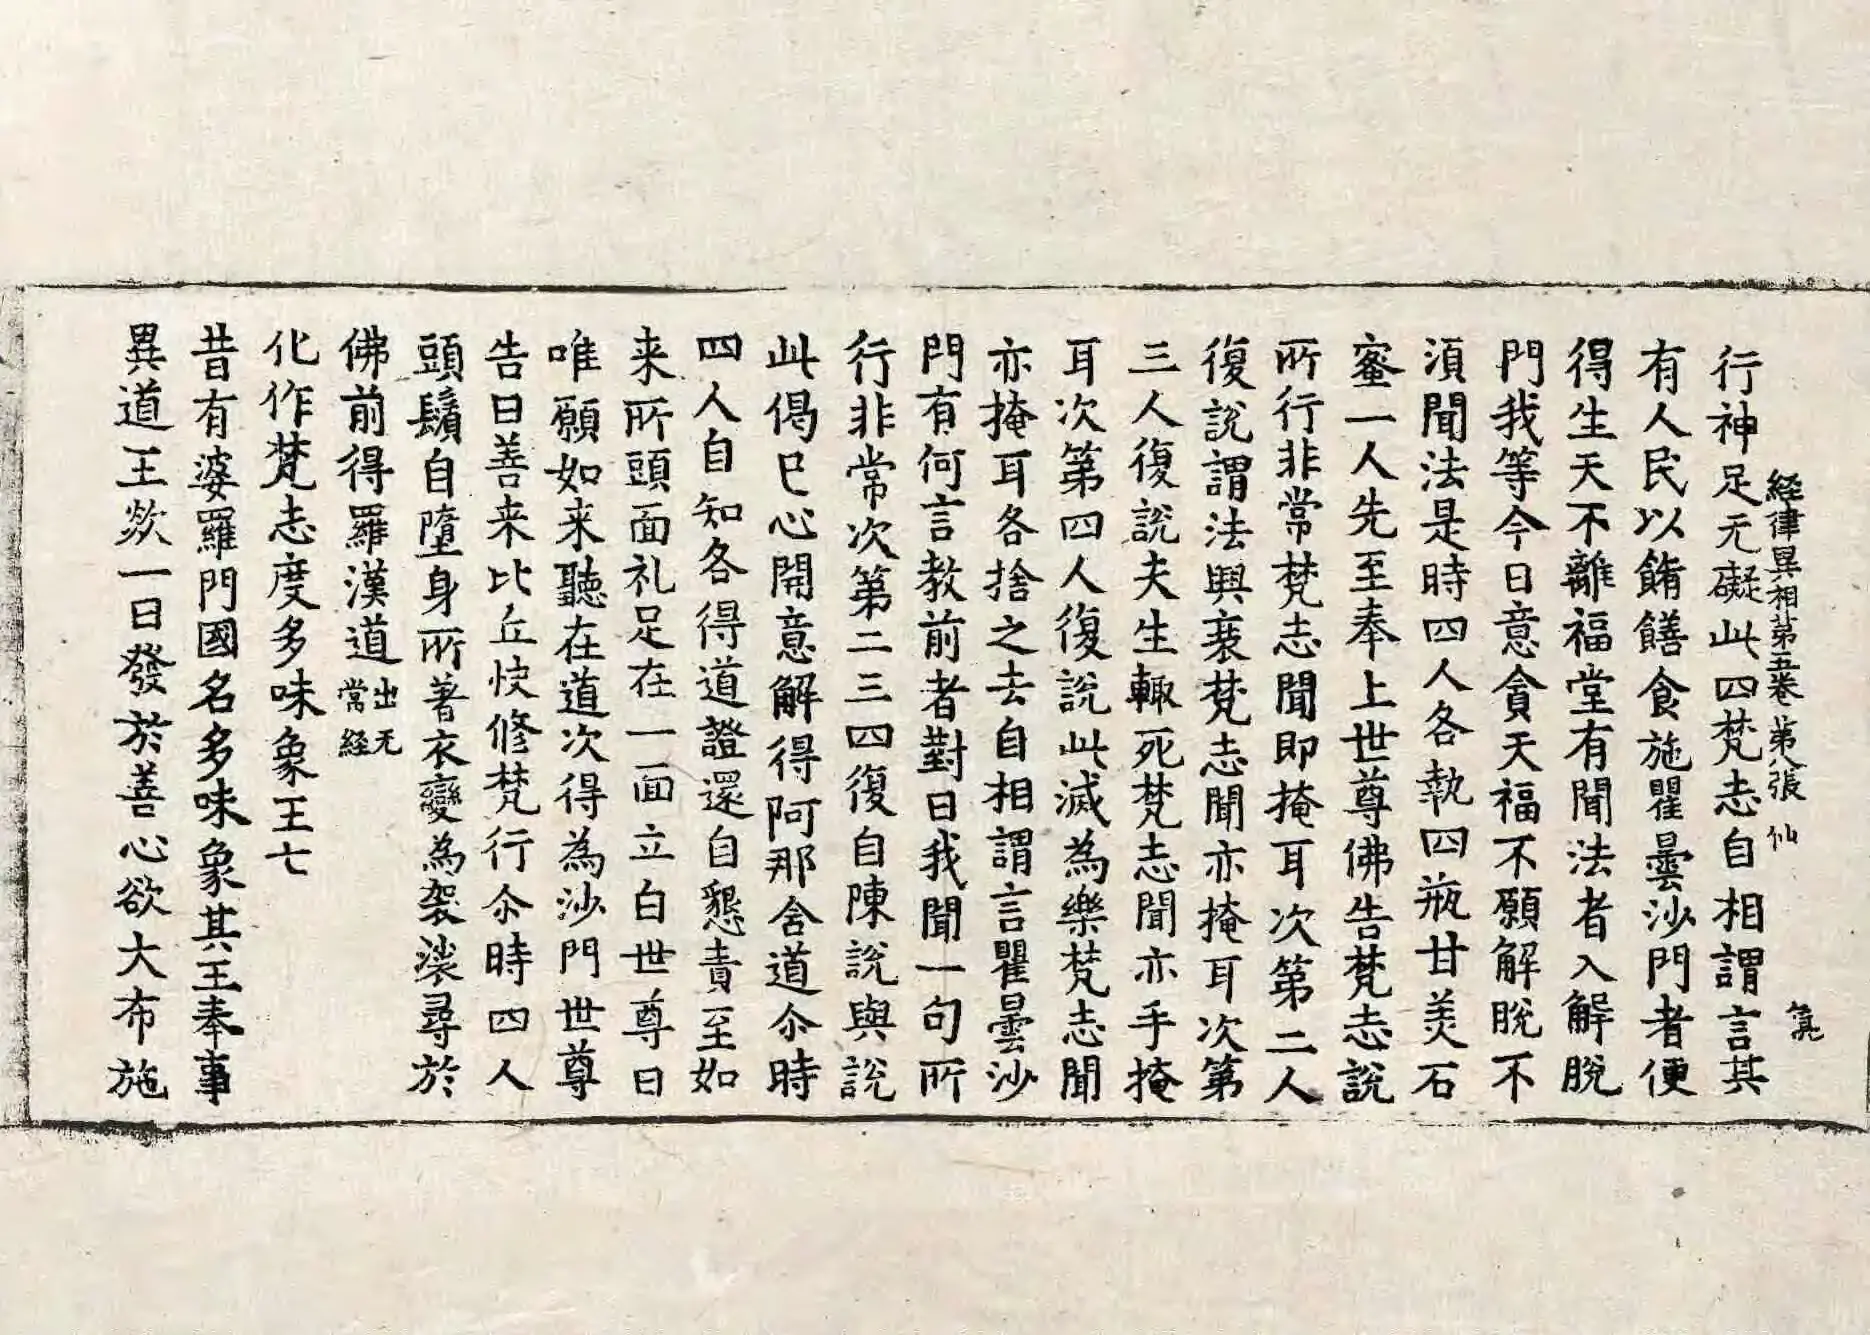 経律異相第五巻 第八張 仙
行神足无礙此四梵志自相謂言其
有人民以餚饍食施瞿曇沙門者便
得生天不離福堂有聞法者入解脫
門我等今日意貪天福不願解脫不
湏聞法是時四人各執四瓶甘美石
蜜一人先至奉上世尊佛告梵志說
所行非常梵志聞即掩耳次第二人
復說謂法興衰梵志聞亦掩耳次第
三人復說夫生輙死梵志聞亦手掩
耳次第四人復說此滅為樂梵志聞
亦掩耳各捨之去自相謂言瞿曇沙
門有何言教前者對曰我聞一句所
行非常次第二三四復自陳說與說
此偈已心開意解得阿那含道尒時
四人自知各得道證還自懇責至如
来所頭面礼足在一面立白世尊曰
唯願如来聽在道次得為沙門世尊
告曰善来比丘快修梵行尒時四人
頭鬚自墮身所著衣變為袈裟尋於
佛前得羅漢道出无常経
化作梵志度多味象王七
昔有婆羅門國名多味象其王奉事
異道王欻一日發於善心欲大布施